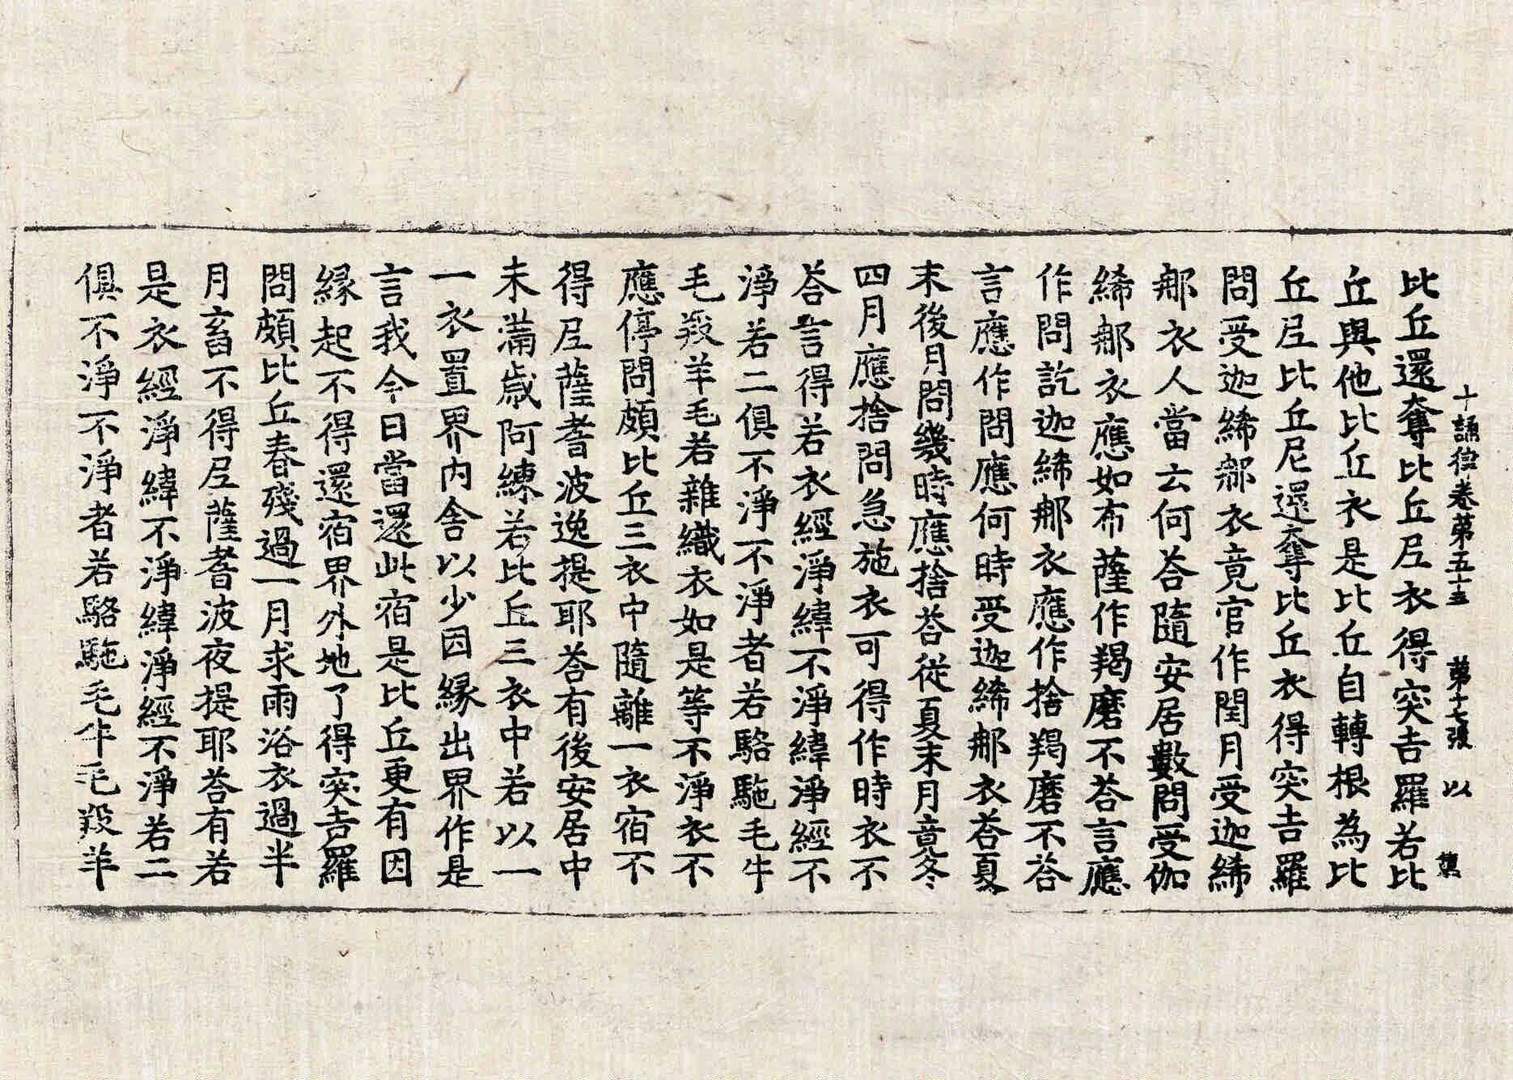 比丘還奪比丘尼衣得突吉羅若比
十誦律卷第五十五 第十七張 以
丘與他比丘衣是比丘自轉根為比
丘尼比丘尼還奪比丘衣得突吉羅
問受迦絺郍衣竟官作閏月受迦絺
郍衣人當云何荅隨安居數問受伽
絺郍衣應如布薩作羯磨不荅言應
作問訖迦絺郍衣應作捨羯磨不荅
言應作問應何時受迦絺郍衣荅夏
末後月問幾時應捨荅從夏末月竟冬
四月應捨問急施衣可得作時衣不
荅言得若衣經淨緯不淨緯淨經不
淨若二俱不淨不淨者若駱駞毛牛
毛羖羊毛若雜織衣如是等不淨衣不
應停問頗比丘三衣中隨離一衣宿不
得尼薩耆波逸提耶荅有後安居中
未滿歲阿練若比丘三衣中若以一
一衣置界內舍以少因緣出界作是
言我今日當還此宿是比丘更有因
緣起不得還宿界外地了得突吉羅
問頗比丘春殘過一月求雨浴衣過半
月畜不得尼薩耆波夜提耶荅有若
是衣經淨緯不淨緯淨經不淨若二
俱不淨不淨者若駱駞毛牛毛羖羊